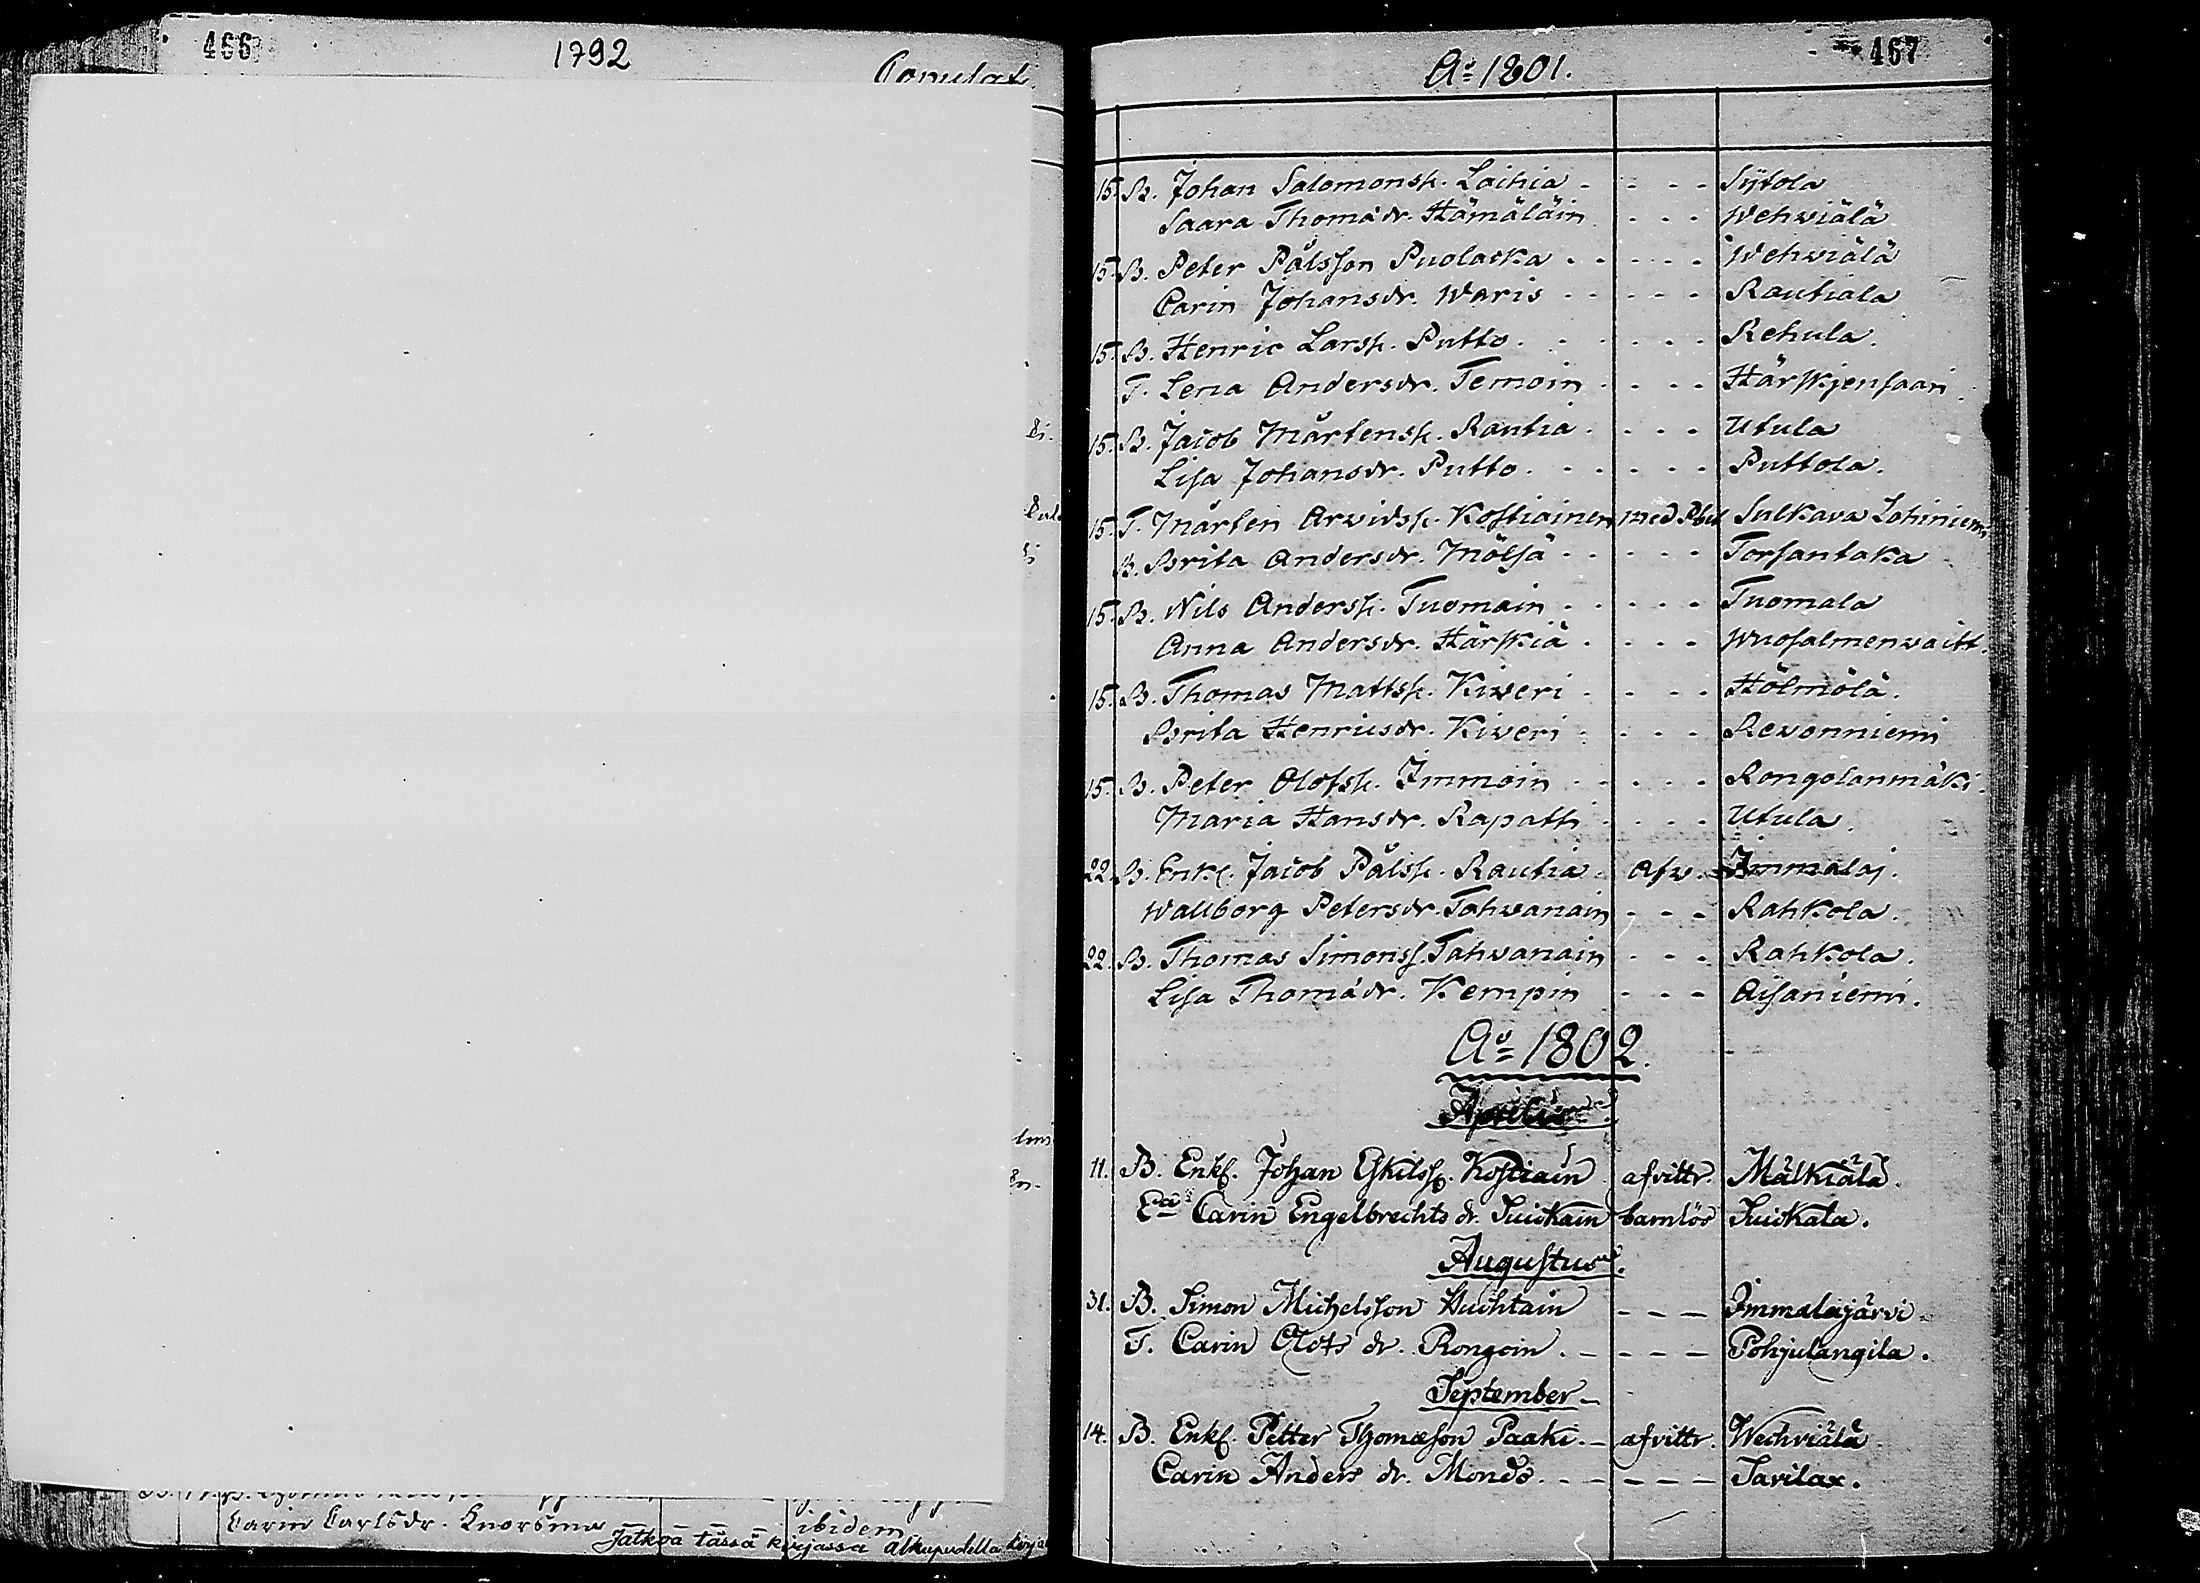 466
1792
Copulati
Carin Carlsdr.
ibidem
Jatkoa tässä kirjassa alkupuolella
467
Aō 1801.
15. B. Johan Salomonsk. Laihia - - - - Sÿtola
Saara Thomædr. Hämäläin - - - Wehwiälä
15. B. Peter Pålsson Puolacka - - - - - Wehwiälä
Carin Johansdr. Waris - - - - - Rautiala
15. B. Henric Larsk. Putto. - - - - - Rehula.
T. Lena Andersdr. Temoin - - - - Härskjensaari.
15. B. Jacob Mårtensk. Rautia - - - - Utula
Lisa Johansdr. Putto. - - - - - Puttola.
15. T. Mårten Arvidsk. Kostiainen med Sulkava Lohiniemi
B. Brita Andersdr. Mölsä - - - - - Torsantaka
15. B. Nils Andersk. Tuomain - - - - - Tuomala
Anna Andersdr. Härskiä - - - - Wuosalmenwaitt.
15. B. Thomas Mattsk. Kiweri - - - - Hölmölä.
Brita Henricsdr. Kiweri - - - - Rewonniemi
15. B. Peter Olofsk. Immoin - - - - - Rongolanmäki.
Maria Hansdr. Rapatti - - - - Utula.
22. B. Enkl. Jacob Pålsk. Rautia. Afw. Immalaj.
Wallborg Petersdr. Tahwanain - - - Rahkola.
22. B. Thomas Simonss. Tahwanain - - - Rahkola.
Lisa Thomædr. Kempin - - - Aisaniemi.
Aō 1802.
Aprilis
11. B. Enkl. Johan Eskilss. Kostiain afvittr. Mälkiälä.
E:a Carin Engelbrechts dr. Suickain barnlös Suickala.
Augustus.
31. B. Simon Michelsson Huchtain - - - Immalajärvi.
T. Carin Olofs dr. Rongoin. - - - - Pohjalangila.
September -
14. B. Enkl. Petter Thomæson Paaki. - afvittr. Wechviälä
Carin Anders dr. Mondo. - - - - - Savilax.